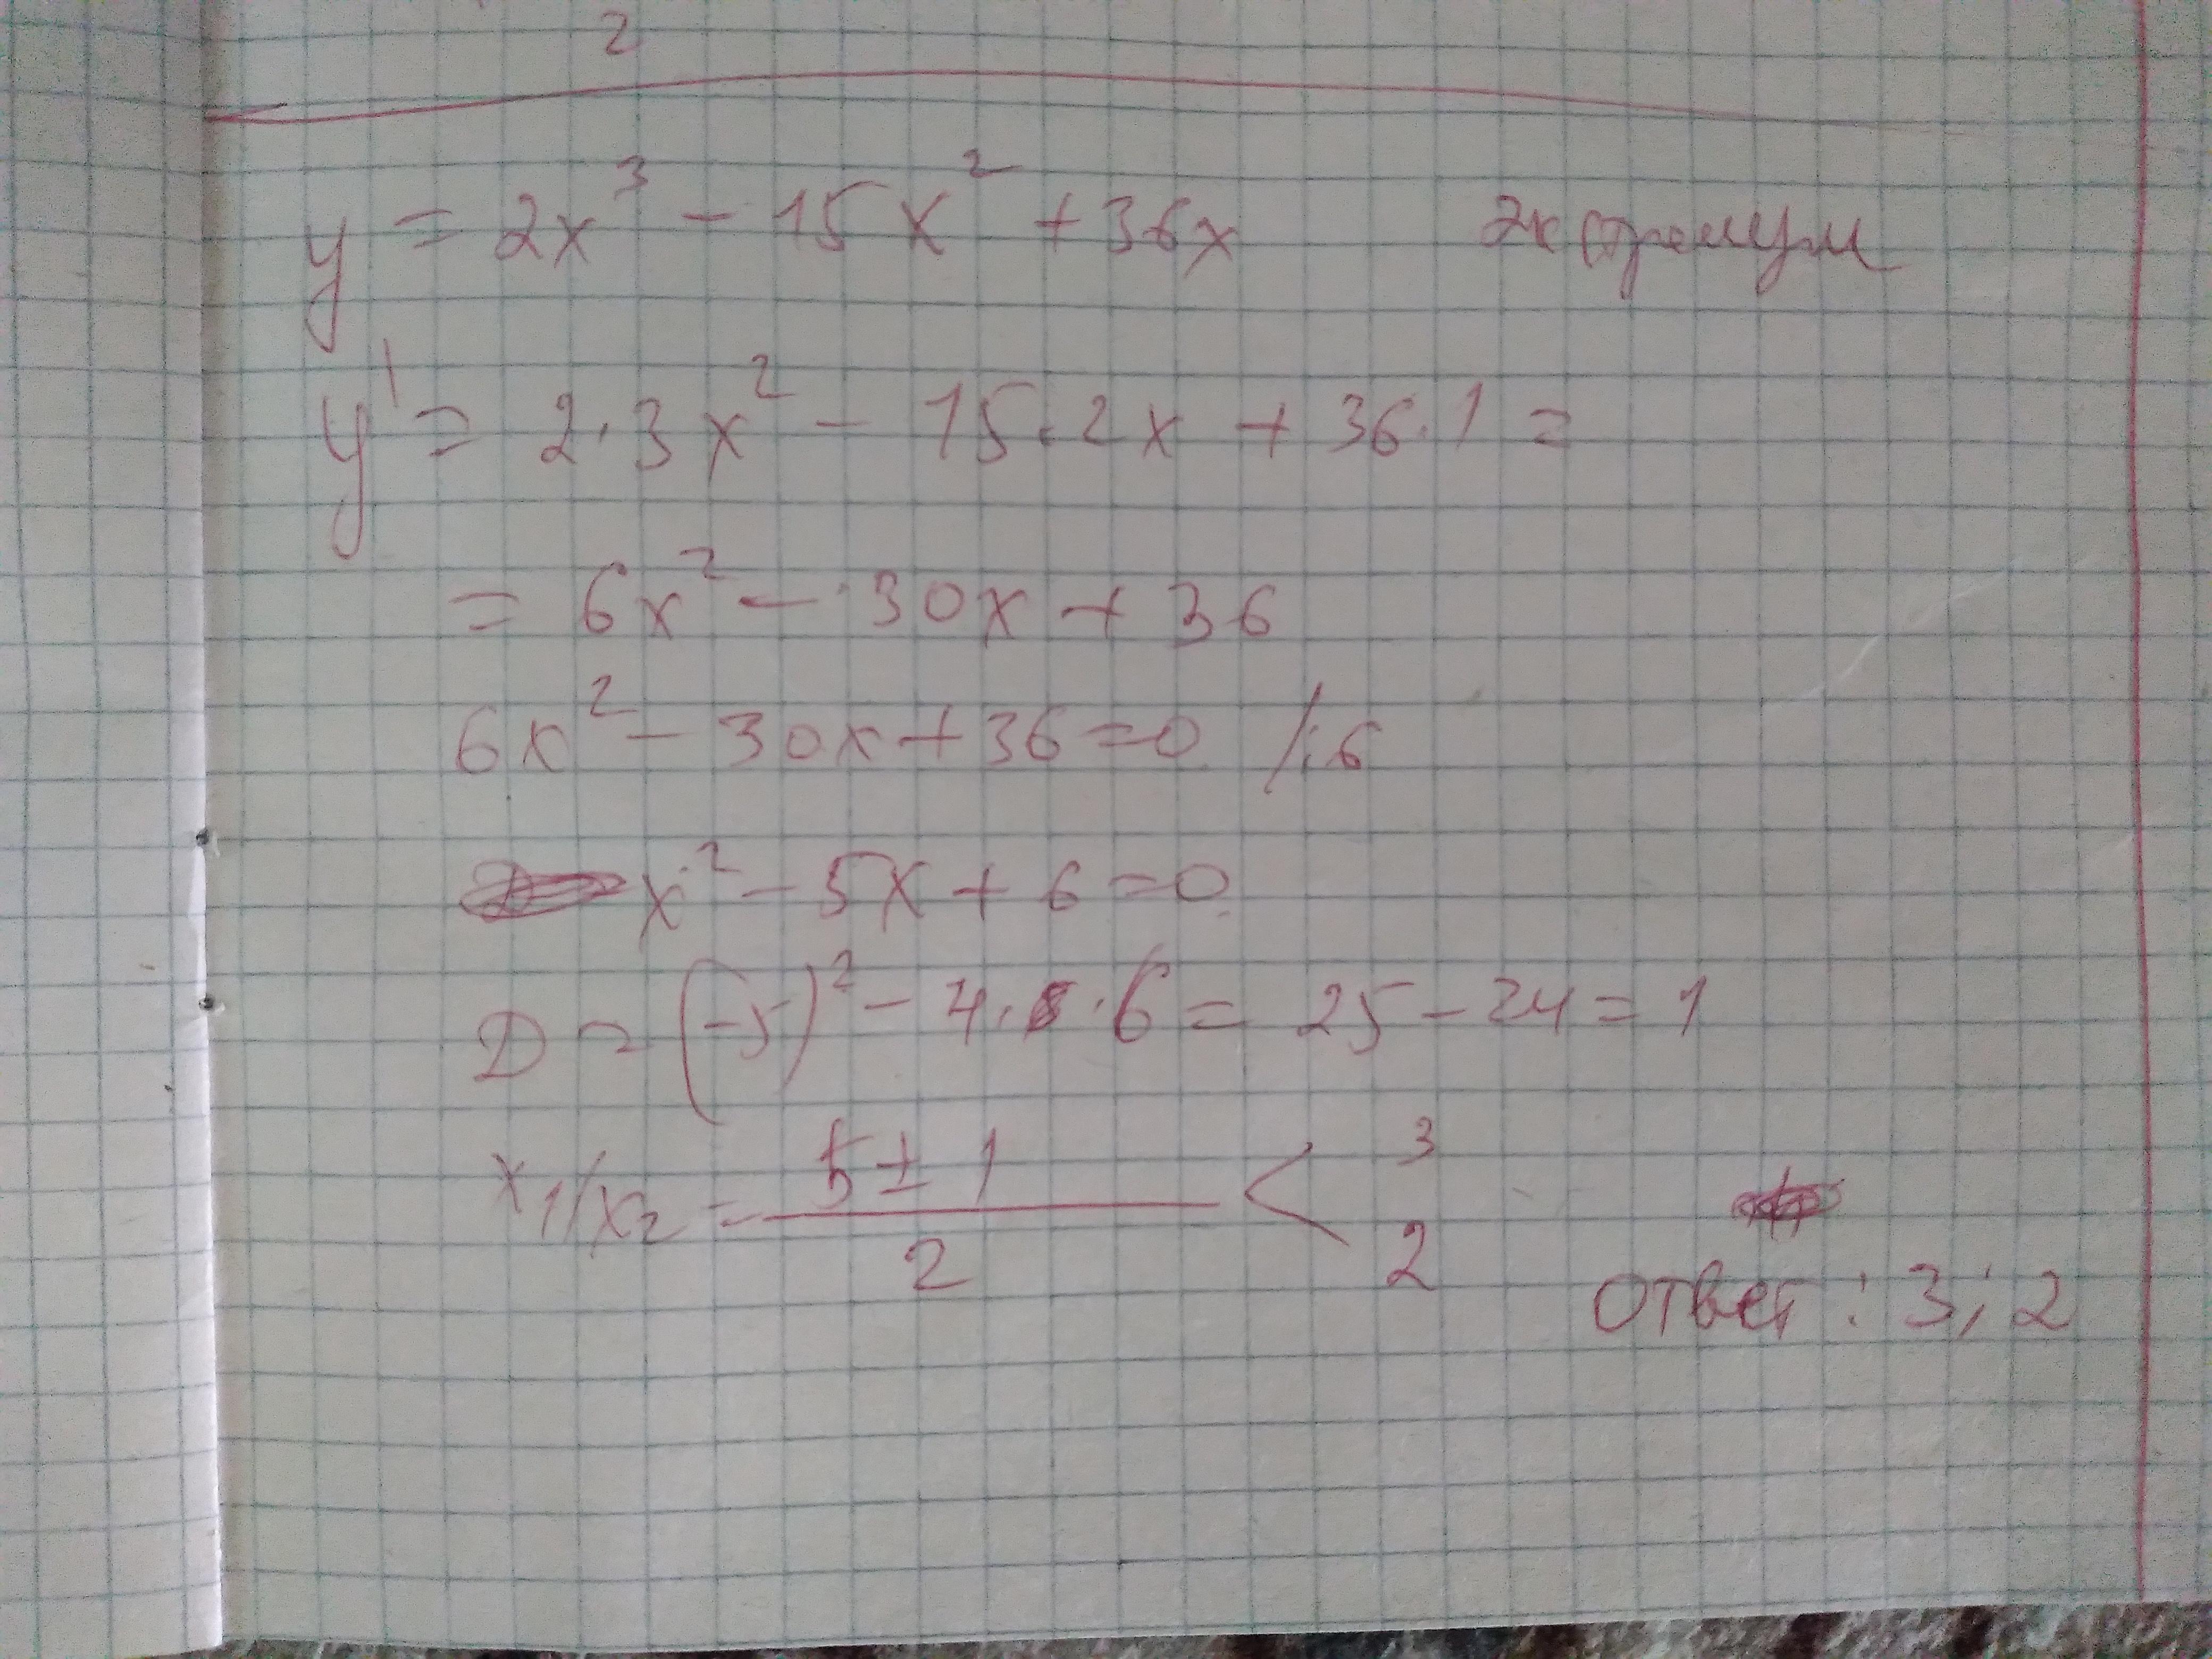 2
y = 2x³ - 15x² + 36x экстремум
y' = 2·3x² - 15·2x + 36·1 =
= 6x² - 30x + 36
6x² - 30x + 36 = 0 /:6
x² - 5x + 6 = 0
D = (-5)² - 4· ·6 = 25 - 24 = 1
x₁/x₂ = (5 ± 1)/2 < 3 2
Ответ: 3; 2